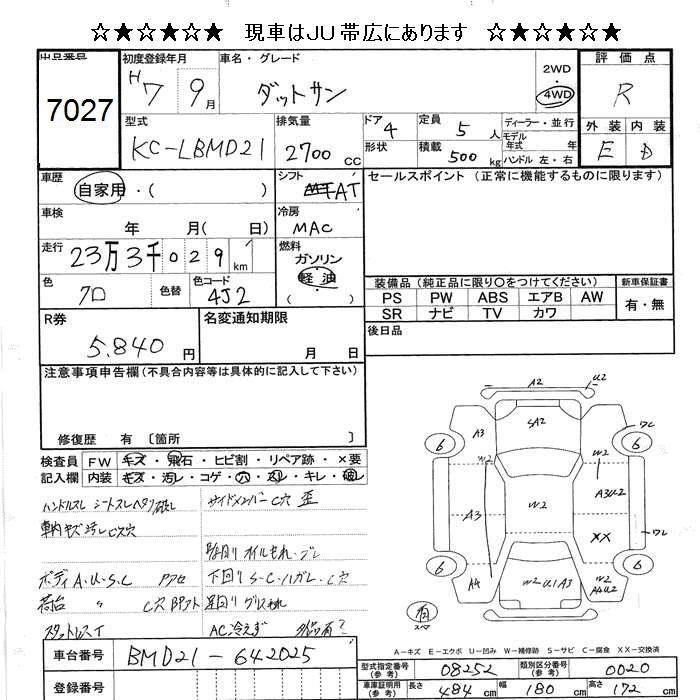 ☆★☆★☆★ 現車はJU帯広にあります ☆★☆★☆★
出品番号
7027
初度登録年月
H7 9月
車名・グレード
ダットサン
2WD
・
4WD
評価点
R
型式
KC-LBMD21
排気量
2700 CC
ドア 4
形状
定員 5 人
積載 500 kg
ディーラー・並行
モデル
年式 年
ハンドル 左・右
外装 内装
E D
車歴
自家用・( )
シフト
AT
セールスポイント (正常に機能するものに限ります)
車検
年 月( 日)
冷房
MAC
走行
23万3千029 km
燃料
ガソリン
軽油
( )
色
クロ
色替
色コード
4J2
装備品 (純正品に限り〇をつけてください)
PS PW ABS エアB AW
SR ナビ TV カワ
新車保証書
有・無
R券
5.840 円
名変通知期限
月 日
後日品
注意事項申告欄 (不具合内容等は具体的に記入して下さい)
修復歴 有 〔箇所 〕
検査員
記入欄
FW キズ・飛石・ヒビ割・リペア跡・×要
内装 キズ・汚レ・コゲ・穴・スレ・キレ・破レ
ハンドルスレ シートスレヘタリ破レ
サイドメンバーC穴 歪
車内キズ汚レ
ボディA.U.S.C
下回りS-C-ハガレ.C穴
荷台 〃 C穴
スタットレス
AC冷えず
A2 U2
A3 SA2 ワレ
6 6
W2 W2
A3 W2 A3U2
XX ワレ
6 6
A4 W2 U1 A3 W2 A4U2
有
スペア
A-キズ E-エクボ U-凹み W-補修跡 S-サビ C-腐食 XX-交換済
車台番号 BMD21-642025
登録番号
型式指定番号 08252 類別区分番号 0020
車庫証明用 長さ 484 cm 幅 180 cm 高さ 172 cm